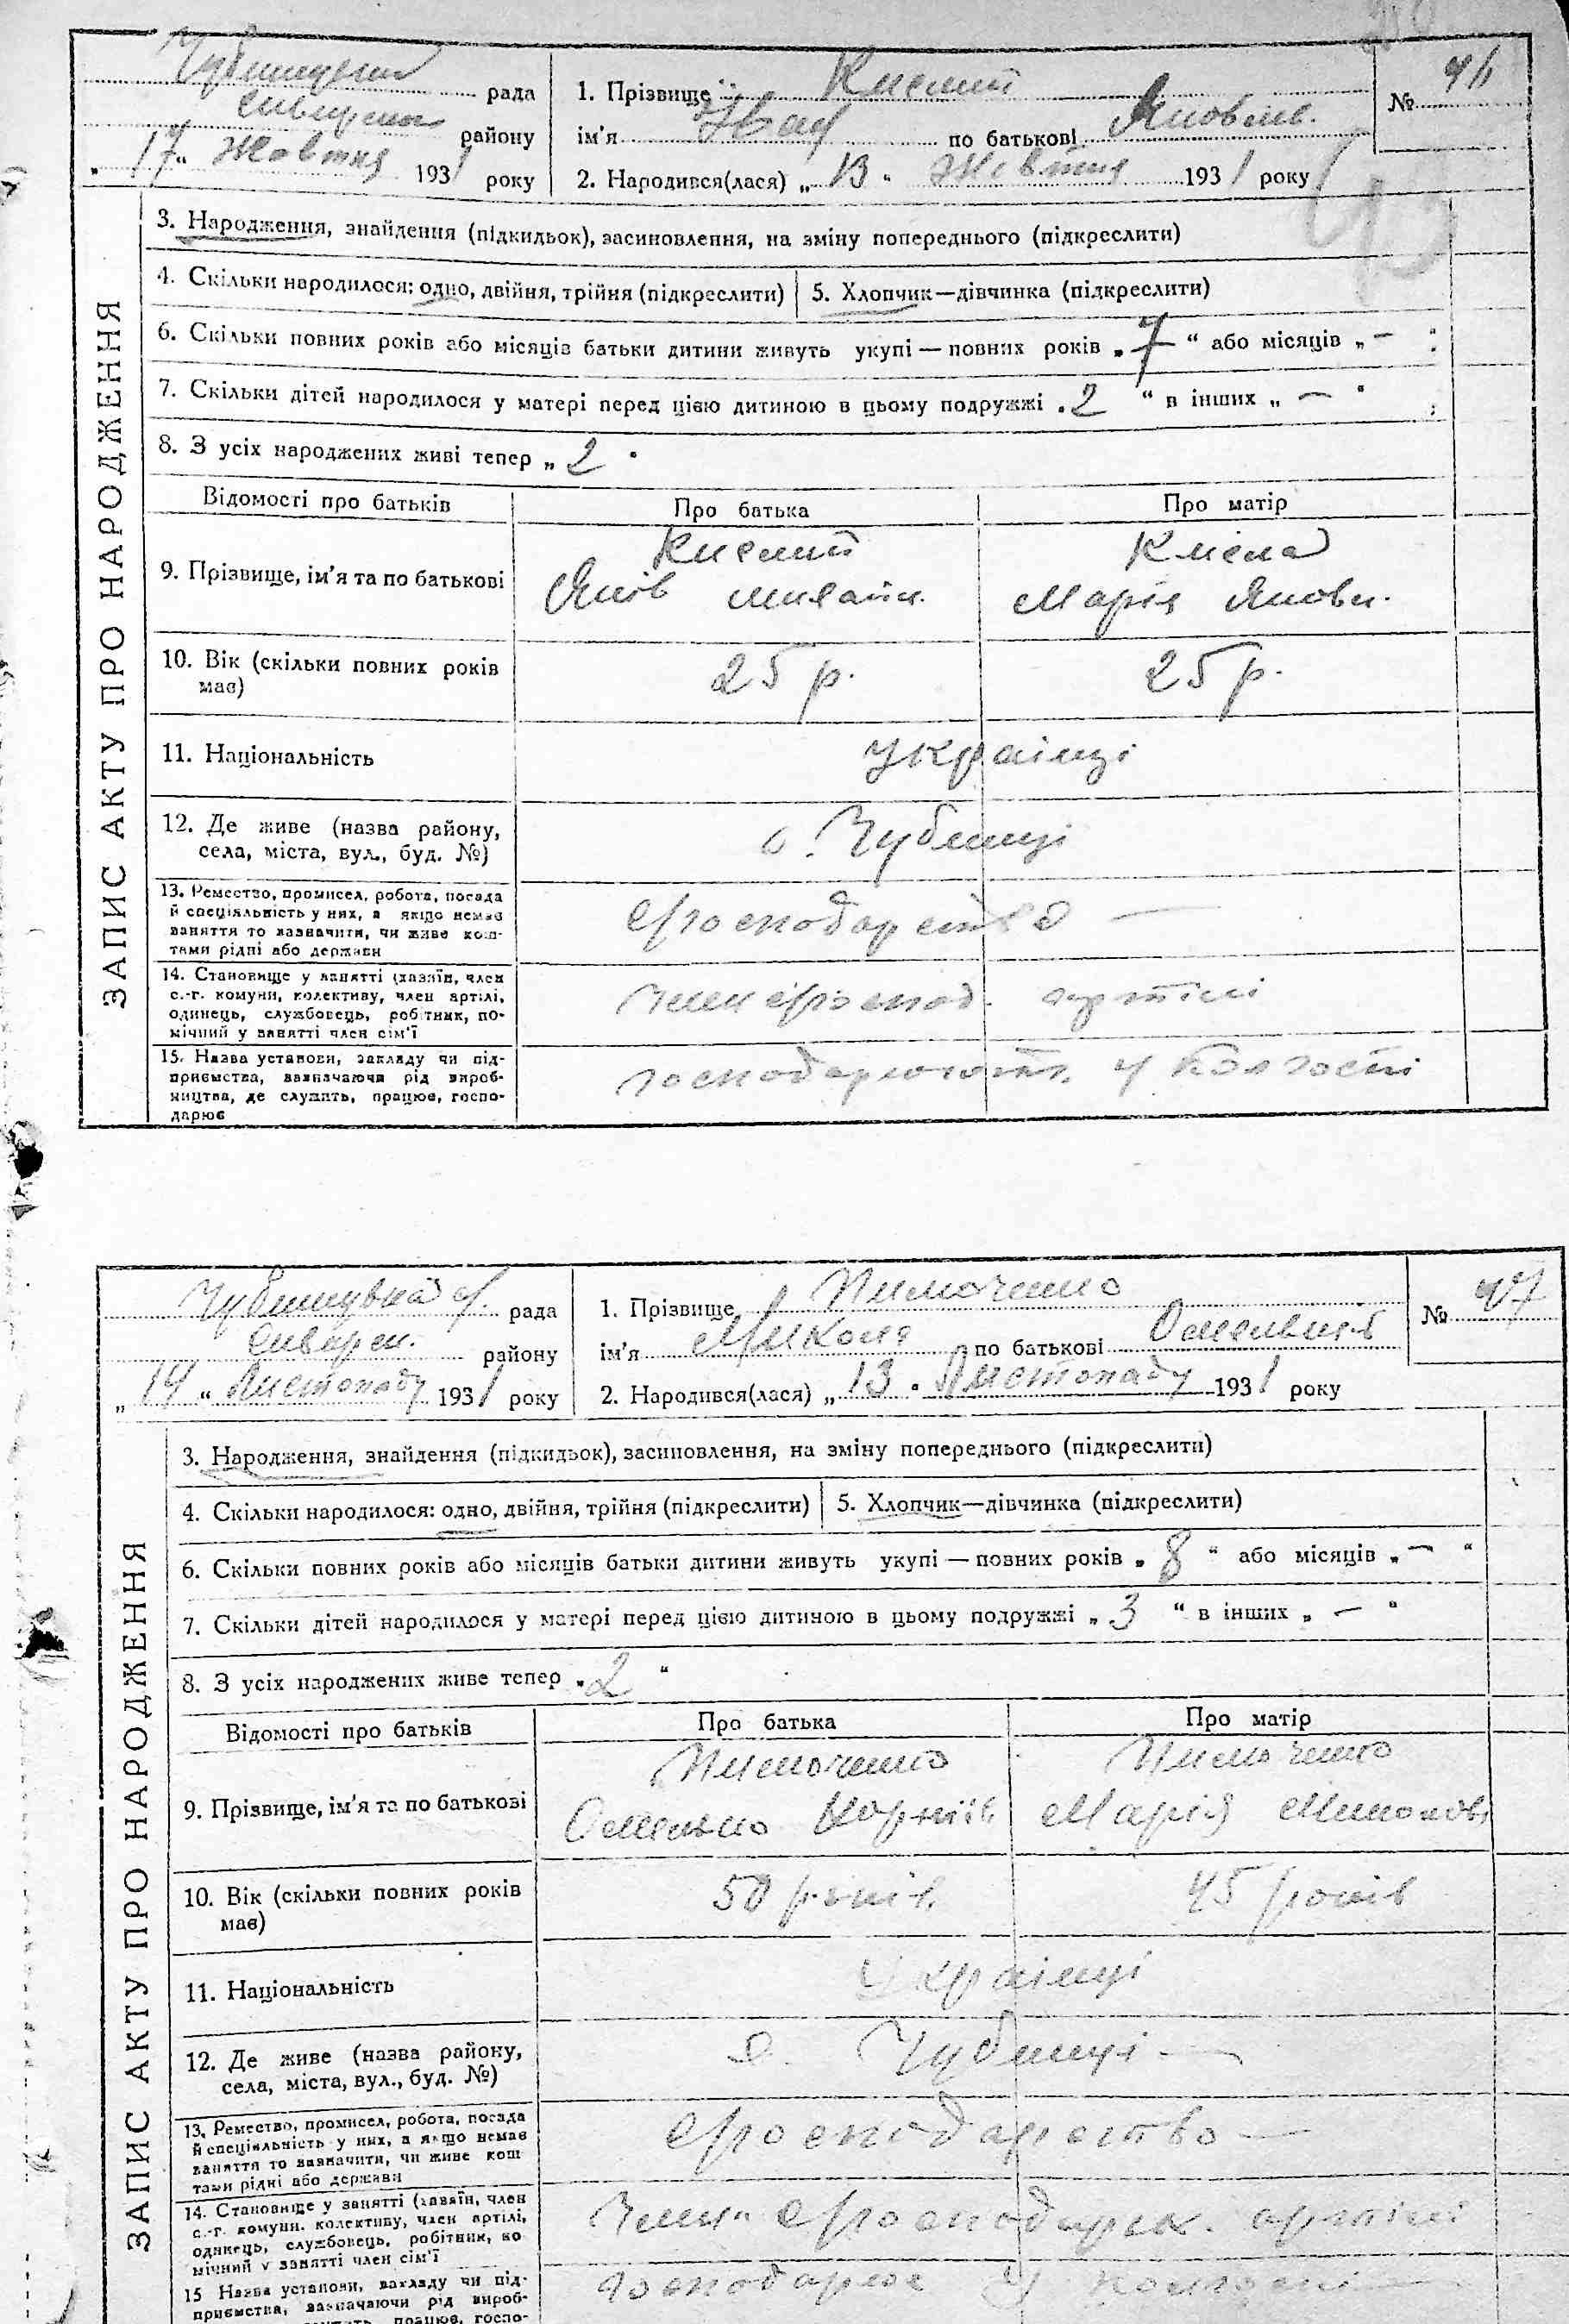 Чубинецька рада
району
„17“ Жовтня 1931 року
1. Прізвище Кислий
ім'я Іван по батькові Яковлев.
2. Народився(лася) „13“ Жовтня 1931 року
№ 46
ЗАПИС АКТУ ПРО НАРОДЖЕННЯ
3. Народження, знайдення (підкидьок), засиновлення, на зміну попереднього (підкреслити)
4. Скільки народилося: одно, двійня, трійня (підкреслити)
5. Хлопчик—дівчинка (підкреслити)
6. Скільки повних років або місяців батьки дитини живуть укупі — повних років „7“ або місяців „—“
7. Скільки дітей народилося у матері перед цією дитиною в цьому подружжі „2“ в інших „—“
8. З усіх народжених живі тепер „2“
Відомості про батьків
Про батька
Про матір
9. Прізвище, ім'я та по батькові
Кислий
Яків Михайл.
Кисла
Марія Яковл.
10. Вік (скільки повних років
має)
25 р.
25 р.
11. Національність
українці
12. Де живе (назва району,
села, міста, вул., буд. №)
с. Чубинці
13. Ремество, промисел, робота, посада
й спеціяльність у них, а якщо немає
заняття то зазначити, чи живе кош-
тами рідні або держави
Господарство —
14. Становище у занятті (хазяїн, член
с.-г. комуни, колективу, член артілі,
одинець, службовець, робітник, по-
мічний у занятті член сім'ї
член господ. артілі
15. Назва установи, закладу чи під-
приємства, зазначаючи рід вироб-
ництва, де служить, працює, госпо-
дарює
господарюють у колгоспі
Чубинецька с. рада
району
„14“ Листопаду 1931 року
1. Прізвище Тимошенко
ім'я Микола по батькові Омелькович
2. Народився(лася) „13“ Листопаду 1931 року
№ 47
ЗАПИС АКТУ ПРО НАРОДЖЕННЯ
3. Народження, знайдення (підкидьок), засиновлення, на зміну попереднього (підкреслити)
4. Скільки народилося: одно, двійня, трійня (підкреслити)
5. Хлопчик—дівчинка (підкреслити)
6. Скільки повних років або місяців батьки дитини живуть укупі — повних років „8“ або місяців „—“
7. Скільки дітей народилося у матері перед цією дитиною в цьому подружжі „3“ в інших „—“
8. З усіх народжених живе тепер „2“
Відомості про батьків
Про батька
Про матір
9. Прізвище, ім'я та по батькові
Тимошенко
Омелько Корніїв.
Тимошенко
Марія
10. Вік (скільки повних років
має)
50 років
45 років
11. Національність
Українці
12. Де живе (назва району,
села, міста, вул., буд. №)
с. Чубинці —
13. Ремество, промисел, робота, посада
й спеціяльність у них, а якщо немає
заняття то зазначити, чи живе кош
тами рідні або держави
Господарство —
14. Становище у занятті (хазяїн, член
с.-г. комуни. колективу, член артілі,
одинець, службовець, робітник, по
мічний у занятті член сім'ї
Член господарск. артілі
15 Назва установи, закладу чи під-
приємства, зазначаючи рід вироб-
працює, госпо-
господарює у колгоспі